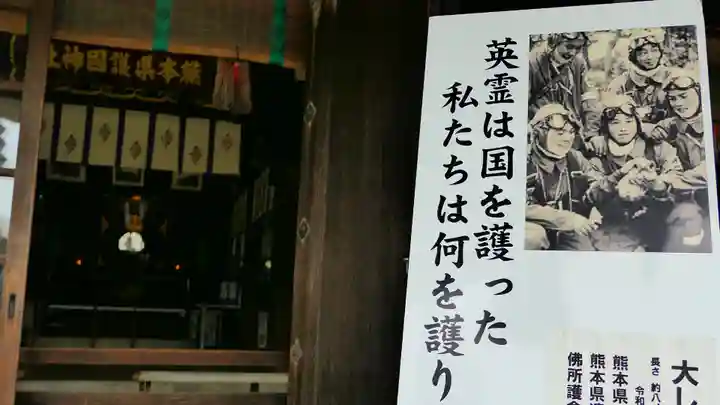 熊本県護国神社
英霊は国を護った
私たちは何を護り
大し
長さ 約八
令和
熊本県
熊本県
佛所護念